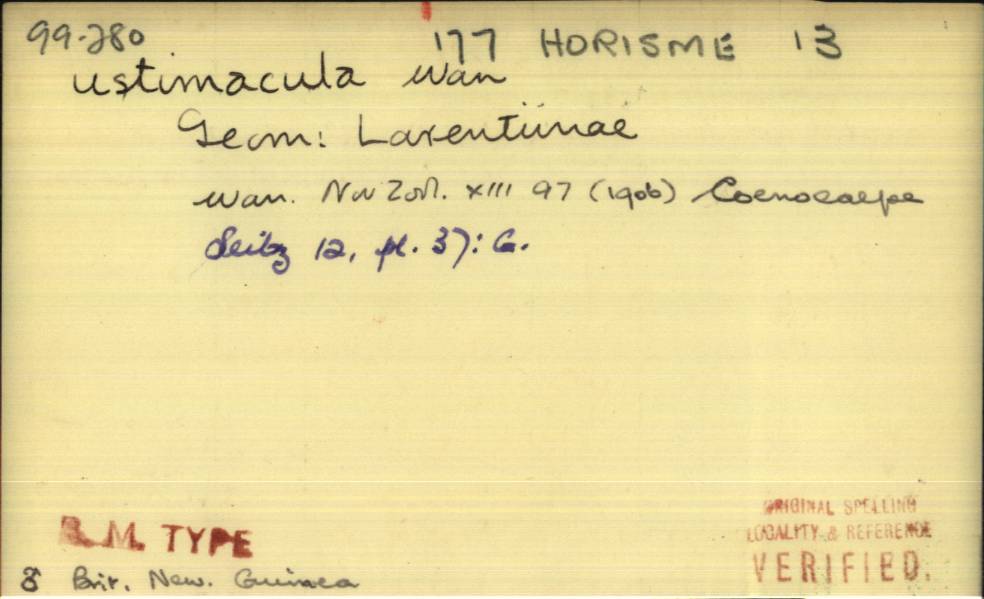 99-280 177 HORISME 13
ustimacula Warr
Geom: Larentiinae
Warr. Nov Zool. XIII 97 (1906) Coenocalpe
Seitz 12, pl. 37: G.
B.M. TYPE
ORIGINAL SPELLING
LOCALITY & REFERENCE
VERIFIED.
♂ Brit. New. Guinea